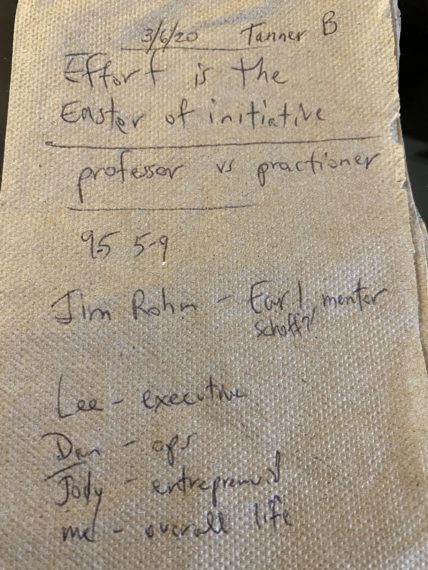 3/6/20 Tanner B
Effort is the
Easter of initiative
professor vs practioner
95 5-9
Jim Rohn - Earl, mentor
schoff?/
Lee - executive
Dan - ops
Jody -
me - overall life